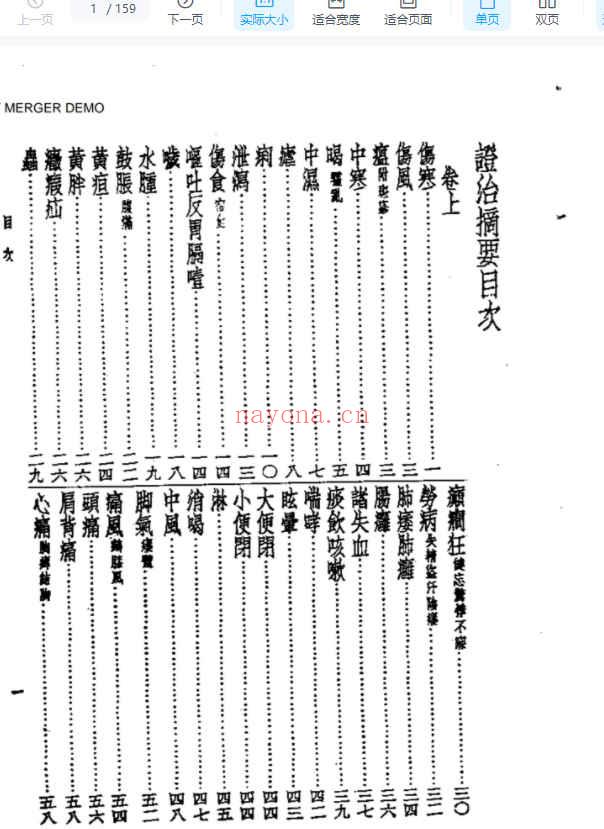 上一页 1 / 159 下一页 实际大小 适合宽度 适合页面 单页 双页
MERGER DEMO
證治摘要目次
卷上
傷寒……一
傷風……三
瘟附斑疹……三
中寒……四
暍霍亂……五
中濕……七
瘧……八
痢……一〇
泄瀉……一三
傷食……一四
嘔吐反胃膈噎……一四
噦……一八
水腫……一九
鼓脹腹滿……二二
黃疸……二四
黃胖……二六
癥瘕疝……二六
蟲……二九
癲癇狂健忘驚悸不寐……三〇
勞病失精盜汗陰痿……三二
肺痿肺癰……三四
腸癰……三六
諸失血……三七
痰飲咳嗽……三九
喘哮……四二
眩暈……四三
大便閉……四四
小便閉……四四
淋……四五
消渴……四七
中風……四八
脚氣痿躄……五二
痛風鶴膝風……五四
頭痛……五六
肩背痛……五八
心痛胸痹結胸……五八
目次
一
nayona.cn